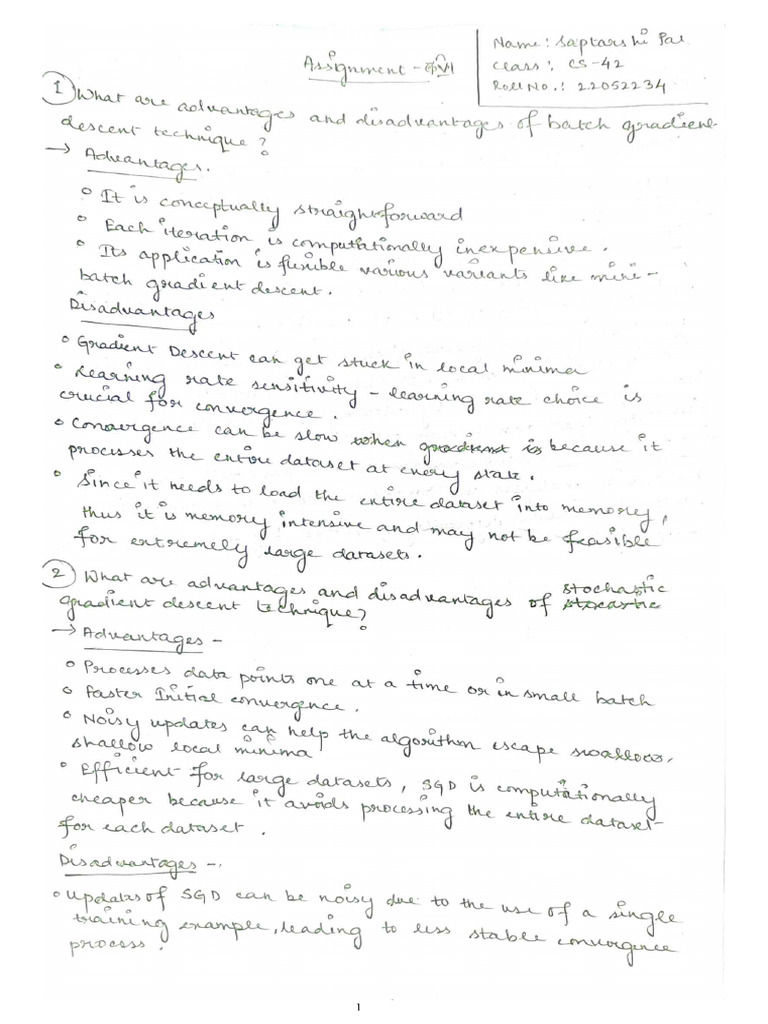 Name: Saptarshi Pal
Class: CS-42
Roll No.: 22052234
Assignment -
1 What are advantages and disadvantages of batch gradient
descent technique?
→ Advantages.
o It is conceptually straightforward
o Each iteration is computationally inexpensive.
o Its application is flexible various variants like mini-
batch gradient descent.
Disadvantages
o Gradient Descent can get stuck in local minima
o Learning rate sensitivity - learning rate choice is
crucial for convergence.
o Convergence can be slow when gradient is because it
processes the entire dataset at every state.
o Since it needs to load the entire dataset into memory,
thus it is memory intensive and may not be feasible
for extremely large datasets.
2 What are advantages and disadvantages of stochastic
gradient descent technique?
→ Advantages -
o Processes data points one at a time or in small batch
o Faster Initial convergence.
o Noisy updates can help the algorithm escape swallow.
shallow local minima
o Efficient for large datasets, SGD is computationally
cheaper because it avoids processing the entire dataset
for each dataset.
Disadvantages -.
o Updates of SGD can be noisy due to the use of a single
training example, leading to less stable convergence
process.
1